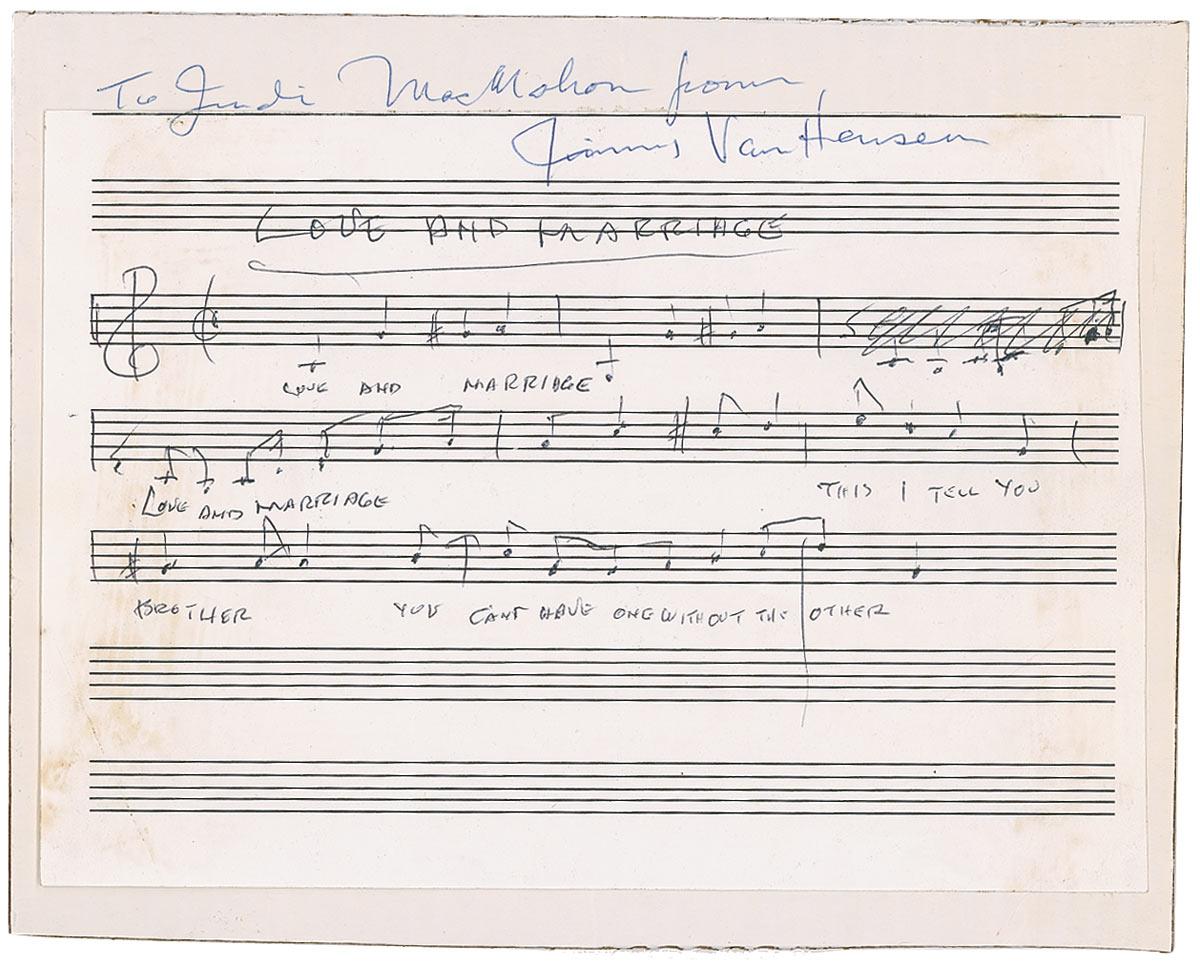 To Judi MacMahon from
Jimmy Van Heusen
LOVE AND MARRIAGE
LOVE AND MARRIAGE
LOVE AND MARRIAGE THIS I TELL YOU
BROTHER YOU CANT HAVE ONE WITHOUT THE OTHER